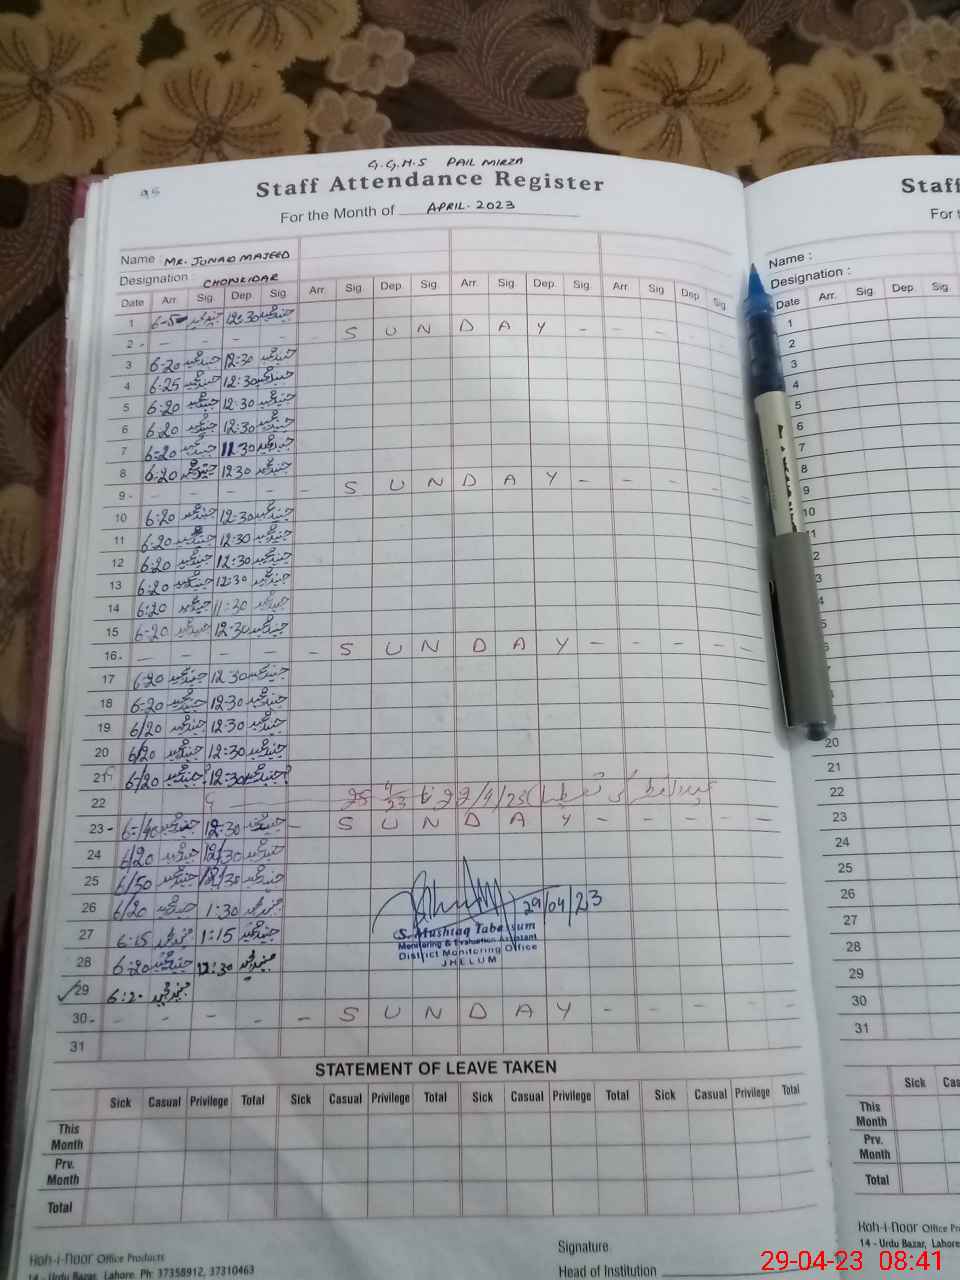 G.G.H.S PAIL MIRZA
95
Staff Attendance Register
For the Month of APRIL. 2023
Name : MR. JUNAID MAJEED
Designation : CHONKIDAR
Date Arr. Sig. Dep. Sig. Arr. Sig. Dep. Sig. Arr. Sig. Dep. Sig. Arr. Sig. Dep. Sig.
1 6-5 جنید مجید 12:30 جنید مجید
2 - - - - - - S U N D A Y - - - -
3 6-20 جنید مجید 12:30 جنید مجید
4 6:25 جنید مجید 12:30 جنید مجید
5 6:20 جنید مجید 12:30 جنید مجید
6 6:20 جنید مجید 12:30 جنید مجید
7 6:20 جنید مجید 11:30 جنید مجید
8 6:20 جنید مجید 12:30 جنید مجید
9 - - - - - - S U N D A Y - - - - -
10 6:20 جنید مجید 12:30 جنید مجید
11 6:20 جنید مجید 12:30 جنید مجید
12 6:20 جنید مجید 12:30 جنید مجید
13 6:20 جنید مجید 12:30 جنید مجید
14 6:20 جنید مجید 11:30 جنید مجید
15 6-20 جنید مجید 12:30 جنید مجید
16. - - - - - S U N D A Y - - - - -
17 6-20 جنید مجید 12:30 جنید مجید
18 6-20 جنید مجید 12:30 جنید مجید
19 6/20 جنید مجید 12:30 جنید مجید
20 6/20 جنید مجید 12:30 جنید مجید
21 6/20 جنید مجید 12:30 جنید مجید
22 عیدالفطر کی تعطیلات 22/4/23 تا 25/4/23
23 - 6-/40 جنید مجید 12:30 جنید مجید - S U N D A Y - - - - -
24 6/20 جنید مجید 12/30 جنید مجید
25 6/50 جنید مجید 12/30 جنید مجید
26 6/20 جنید مجید 1:30 جنید مجید
27 6:15 جنید مجید 1:15 جنید مجید
28 6:20 جنید مجید 12:30 جنید مجید
29 6:20 جنید مجید
29/04/23
S. Mushtaq Tabassum
Monitoring & Evaluation Assistant
District Monitoring Office
JHELUM
30 - - - - - - S U N D A Y - - - -
31
STATEMENT OF LEAVE TAKEN
Sick Casual Privilege Total Sick Casual Privilege Total Sick Casual Privilege Total Sick Casual Privilege Total
This Month
Prv. Month
Total
Koh-i-noor Office Products
14 - Urdu Bazar, Lahore. Ph: 37358912, 37310463
Signature
Head of Institution
Staff
For t
Name :
Designation :
Date Arr. Sig. Dep. Sig.
1
2
3
4
5
6
7
8
9
10
11
20
21
22
23
24
25
26
27
28
29
30
31
Sick Cas
This Month
Prv. Month
Total
Koh-i-noor Office Pr
14 - Urdu Bazar, Lahore
29-04-23 08:41